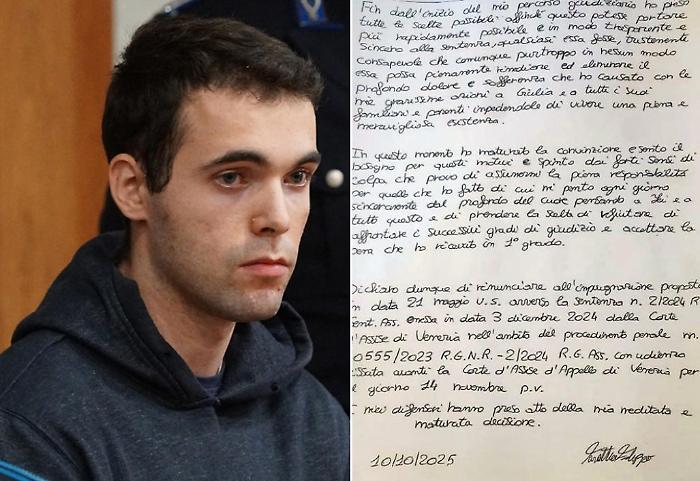 Fin dall'inizio del mio percorso giudiziario ho preso
tutte le scelte possibili affinché questo potesse portare
più rapidamente possibile e in modo trasparente e
sincero alla sentenza, qualsiasi essa fosse, tristemente
consapevole che comunque purtroppo in nessun modo
essa possa pienamente rimediare ed eliminare il
profondo dolore e sofferenza che ho causato con le
mie gravissime azioni a Giulia e a tutti i suoi
familiari e parenti impedendole di vivere una piena e
meravigliosa esistenza.
In questo momento ho maturato la convinzione e sento il
bisogno per questi motivi e spinto dai forti sensi di
colpa che provo di assumermi la piena responsabilità
per quello che ho fatto di cui mi pento ogni giorno
sinceramente dal profondo del cuore pensando a lei e a
tutto questo e di prendere la scelta di rifiutare di
affrontare i successivi gradi di giudizio e accettare la
pena che ho ricevuto in 1° grado.
Dichiaro dunque di rinunciare all'impugnazione proposta
in data 21 maggio u.s. avverso la sentenza n. 2/2024 R.
Sent. Ass. emessa in data 3 dicembre 2024 dalla Corte
d'Assise di Venezia nell'ambito del procedimento penale nn.
0555/2023 R.G.N.R. - 2/2024 R.G. Ass. con udienza
fissata avanti la Corte d'Assise d'Appello di Venezia per
il giorno 14 novembre p.v.
I miei difensori hanno preso atto della mia meditata e
maturata decisione.
10/10/2025